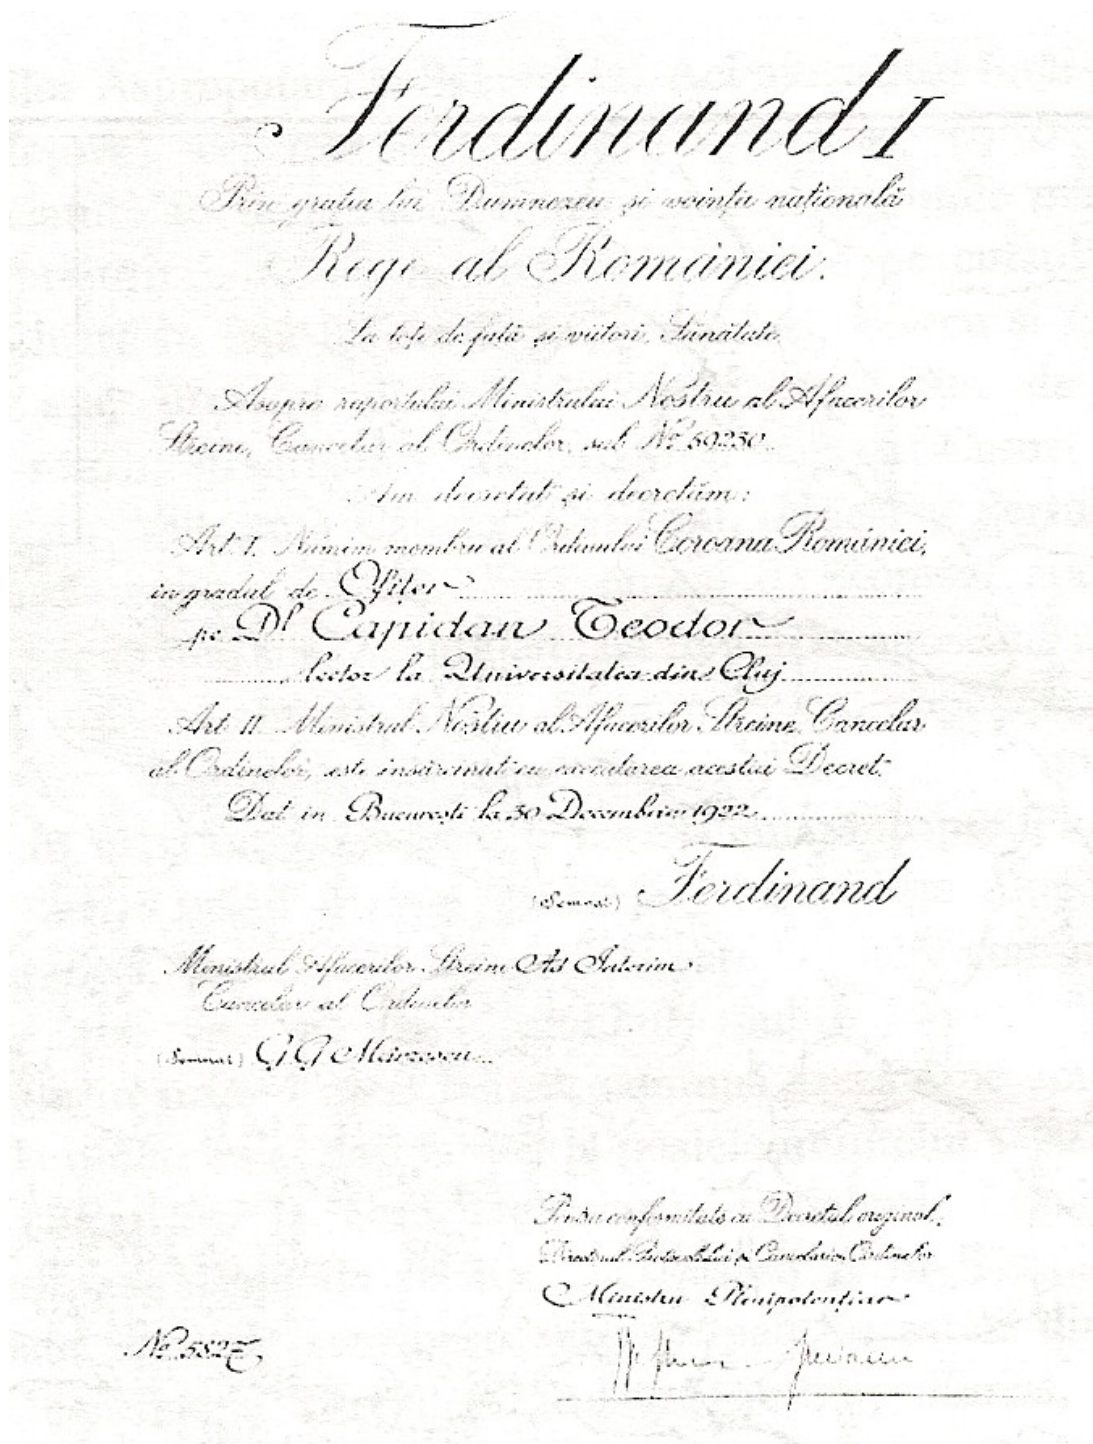 Ferdinand I
Prin grația lui Dumnezeu și voința națională
Rege al României:
La toți de față și viitori, Sănătate
Asupra raportului Ministrului Nostru al Afacerilor
Streine, Cancelar al Ordinelor, sub No 59250.
Am decretat și decretăm:
Art. I. Numim membru al Ordinului Coroana României,
in gradul de Ofițer
pe Dl Capidan Teodor
lector la Universitatea din Cluj
Art II. Ministrul Nostru al Afacerilor Streine, Cancelar
al Ordinelor, este însărcinat cu executarea acestui Decret.
Dat in București la 30 Decembrie 1922
(Semnat) Ferdinand
Ministrul Afacerilor Streine Ad Interim
Cancelar al Ordinelor
(Semnat) G. G. Mârzescu
Pentru conformitate cu Decretul original,
Directorul Protocolului și Cancelariei Ordinelor
Ministru Plenipotențiar
No 582